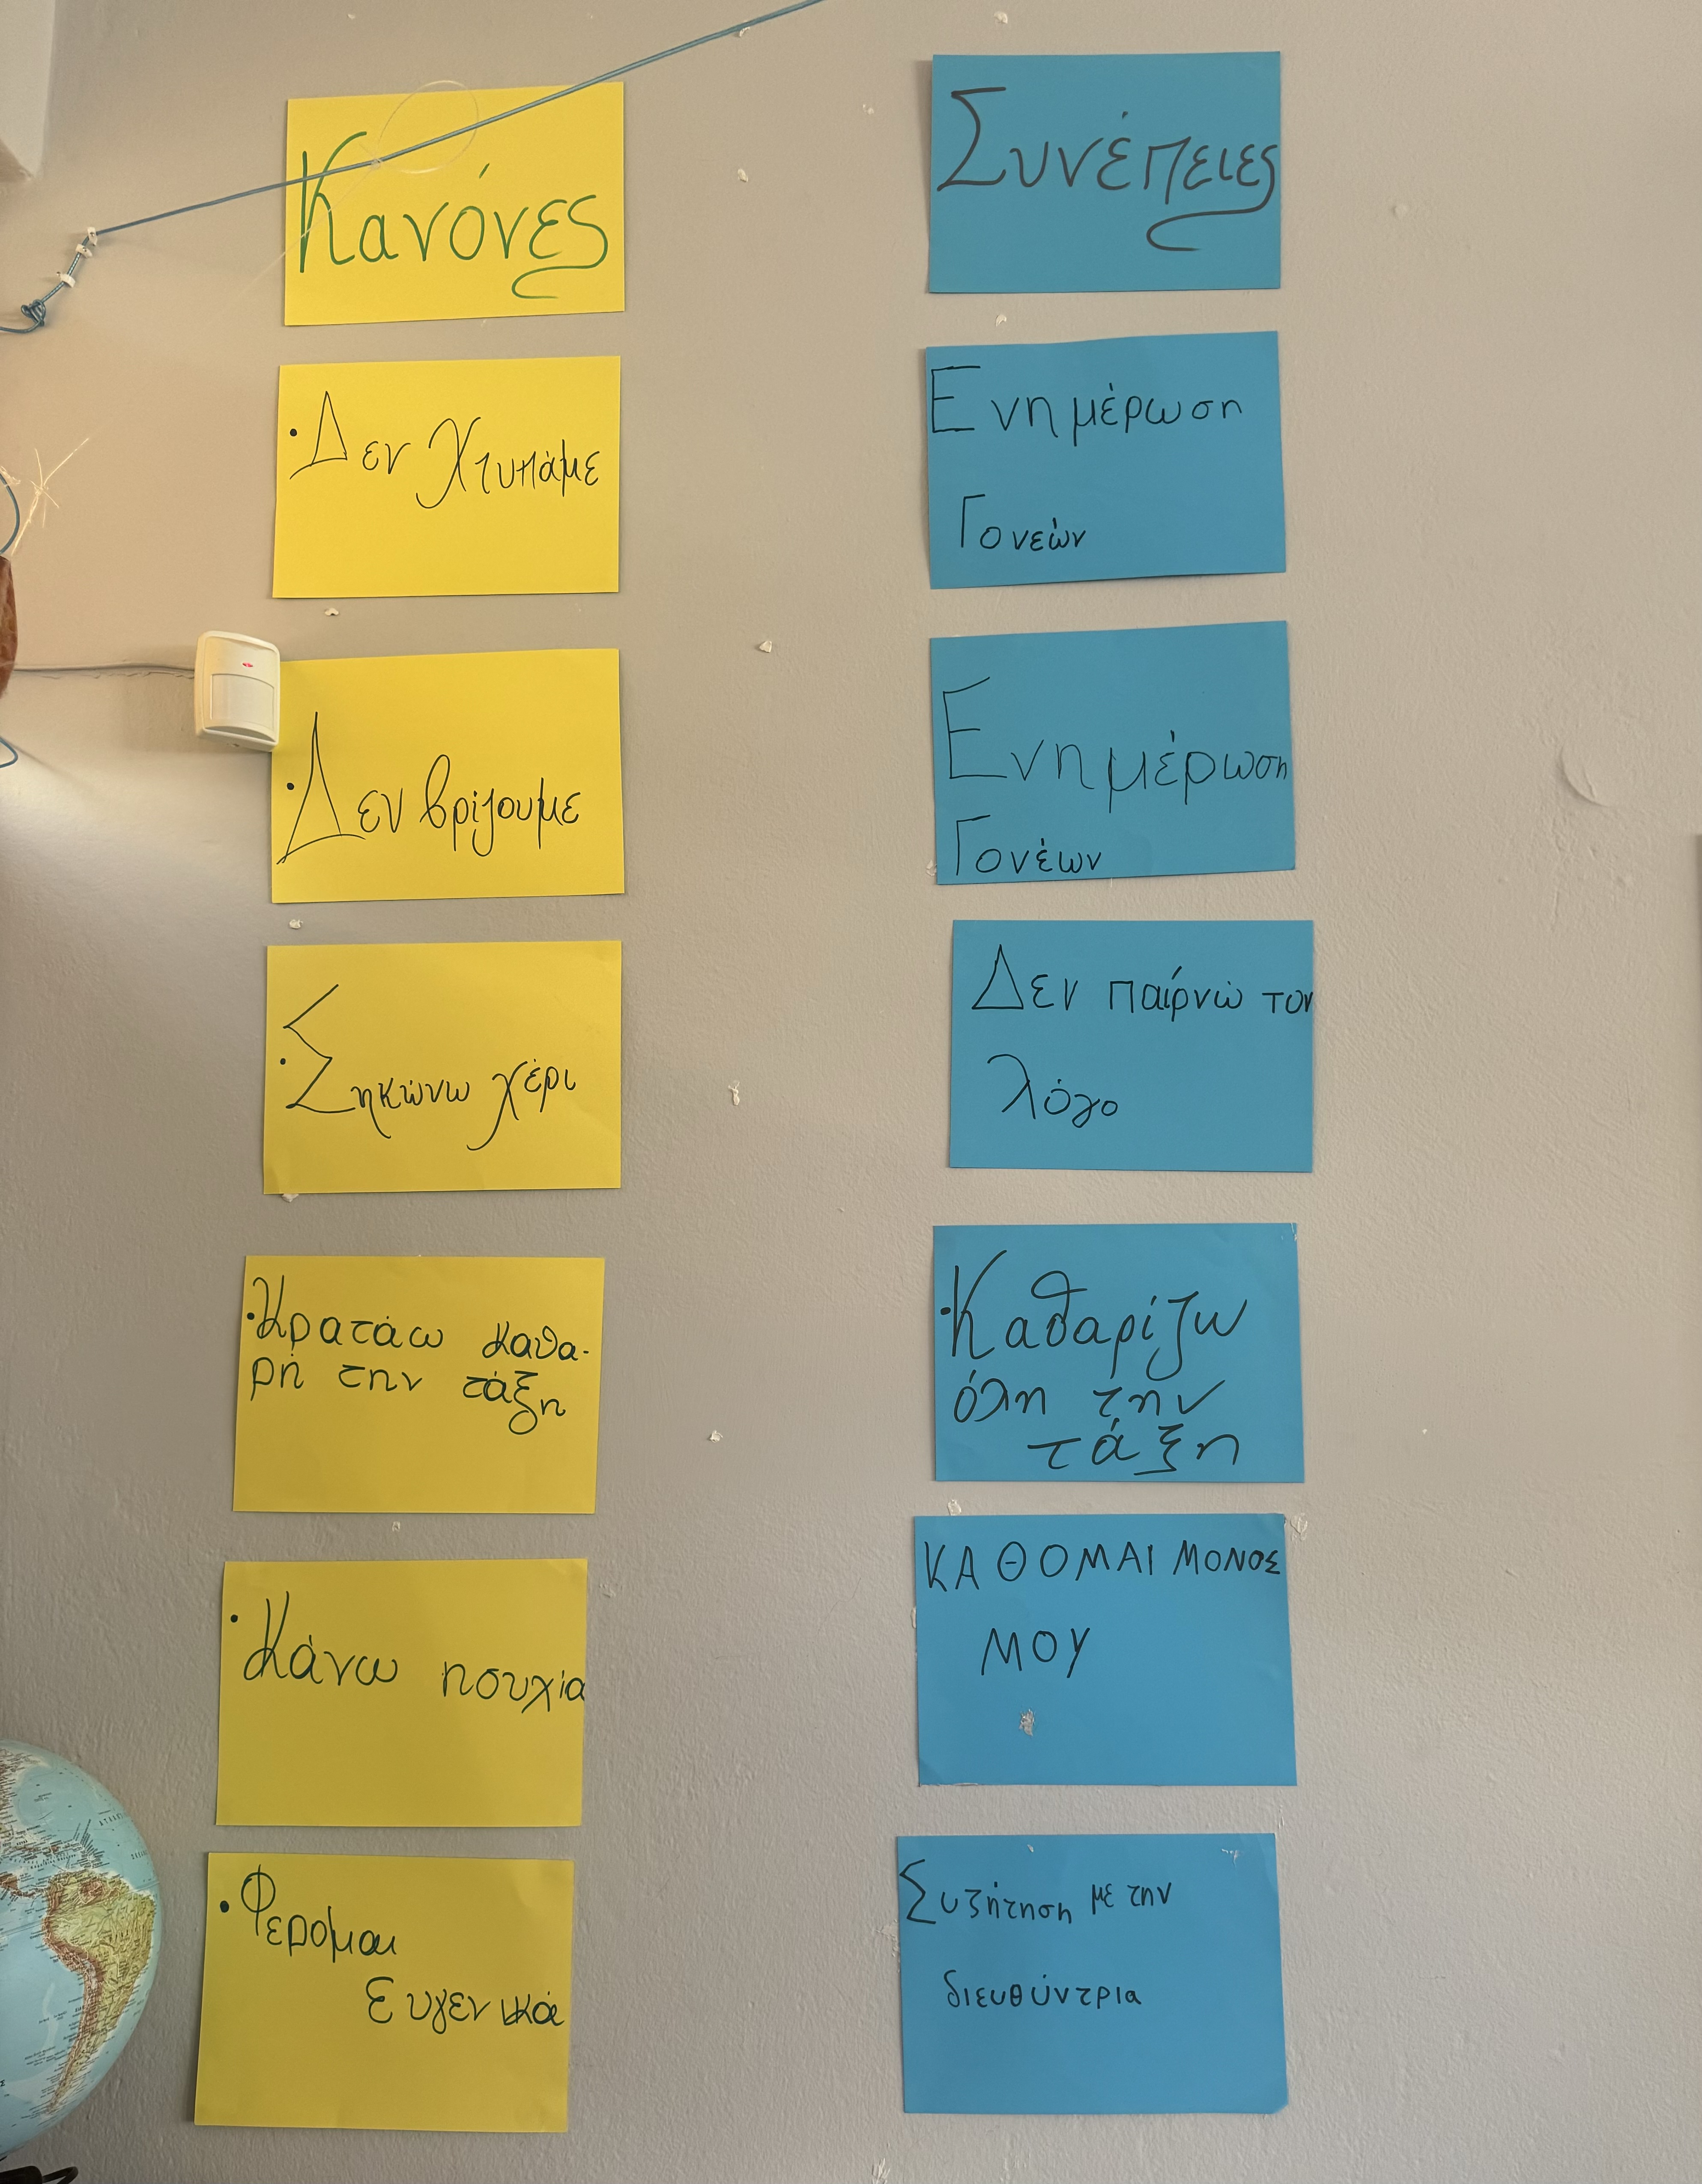 Κανόνες
• Δεν Χτυπάμε
• Δεν βρίζουμε
• Σηκώνω χέρι
• Κρατάω καθα-
ρή την τάξη
• Κάνω ησυχία
• Φερομαι
Ευγενικά
Συνέπειες
Ενημέρωση
Γονεών
Ενημέρωση
Γονέων
Δεν παίρνώ τον
λόγο
• Καθαρίζω
όλη την
τάξη
ΚΑΘΟΜΑΙ ΜΟΝΟΣ
ΜΟΥ
Συζήτηση με την
διευθύντρια